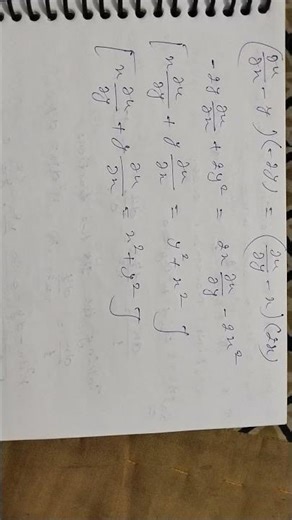 (∂u/∂x - y)(-2y) = (∂u/∂y - x)(2x)
-2y ∂u/∂x + 2y² = 2x ∂u/∂y - 2x²
[x ∂u/∂y + y ∂u/∂x = y² + x²].
[x ∂u/∂y + y ∂u/∂x = x² + y²]